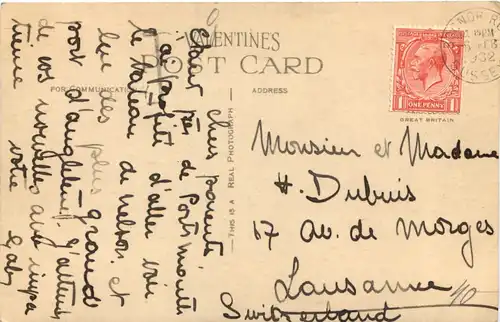 VALENTINES
POST CARD
FOR COMMUNICATION
ADDRESS
THIS IS A REAL PHOTOGRAPH
ONE PENNY
GREAT BRITAIN
1932
chers parents
de Portsmouth
profité d'aller voir
le bateau de nelson. et
plus grand
port d'angleterre. J'attends
de vos nouvelles avec impa
tience votre Gaby
Monsieur et Madame
H. Dubuis
17 av. de Morges
Lausanne
Switzerland